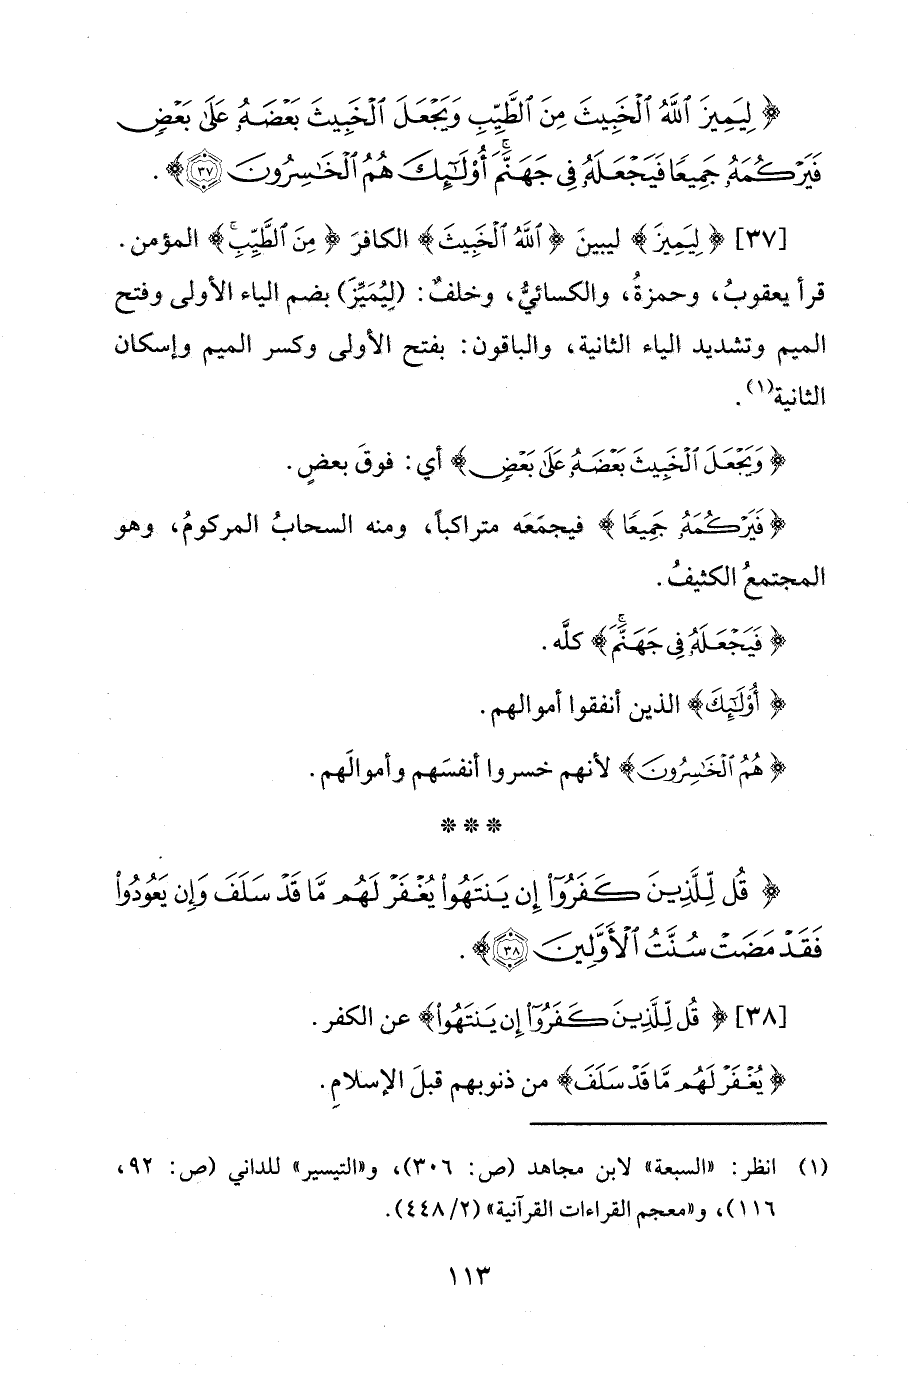 ﴿ لِيَمِيزَ ٱللَّهُ ٱلْخَبِيثَ مِنَ ٱلطَّيِّبِ وَيَجْعَلَ ٱلْخَبِيثَ بَعْضَهُۥ عَلَىٰ بَعْضٍ
فَيَرْكُمَهُۥ جَمِيعًا فَيَجْعَلَهُۥ فِى جَهَنَّمَ ۚ أُو۟لَٰٓئِكَ هُمُ ٱلْخَٰسِرُونَ ﴿٣٧﴾ ﴾ .
[٣٧] ﴿ لِيَمِيزَ ﴾ ليبينَ ﴿ ٱللَّهُ ٱلْخَبِيثَ ﴾ الكافرَ ﴿ مِنَ ٱلطَّيِّبِ ۚ ﴾ المؤمن .
قرأ يعقوبُ، وحمزةُ، والكسائيُّ، وخلفٌ: (لِيُمَيِّزَ) بضم الياء الأولى وفتح
الميم وتشديد الياء الثانية، والباقون: بفتح الأولى وكسر الميم وإسكان
الثانية(١).
﴿ وَيَجْعَلَ ٱلْخَبِيثَ بَعْضَهُۥ عَلَىٰ بَعْضٍ ﴾ أي: فوقَ بعضٍ.
﴿ فَيَرْكُمَهُۥ جَمِيعًا ﴾ فيجمَعَه متراكباً، ومنه السحابُ المركومُ، وهو
المجتمعُ الكثيفُ.
﴿ فَيَجْعَلَهُۥ فِى جَهَنَّمَ ۚ ﴾ كلَّه.
﴿ أُو۟لَٰٓئِكَ ﴾ الذين أنفقوا أموالهم.
﴿ هُمُ ٱلْخَٰسِرُونَ ﴾ لأنهم خسروا أنفسَهم وأموالَهم.
***
﴿ قُل لِّلَّذِينَ كَفَرُوٓا۟ إِن يَنتَهُوا۟ يُغْفَرْ لَهُم مَّا قَدْ سَلَفَ وَإِن يَعُودُوا۟
فَقَدْ مَضَتْ سُنَّتُ ٱلْأَوَّلِينَ ﴿٣٨﴾ ﴾ .
[٣٨] ﴿ قُل لِّلَّذِينَ كَفَرُوٓا۟ إِن يَنتَهُوا۟ ﴾ عن الكفر.
﴿ يُغْفَرْ لَهُم مَّا قَدْ سَلَفَ ﴾ من ذنوبهم قبلَ الإسلامِ.
(١) انظر: «السبعة» لابن مجاهد (ص: ٣٠٦)، و«التيسير» للداني (ص: ٩٢،
١١٦)، و«معجم القراءات القرآنية» (٢/ ٤٤٨).
١١٣